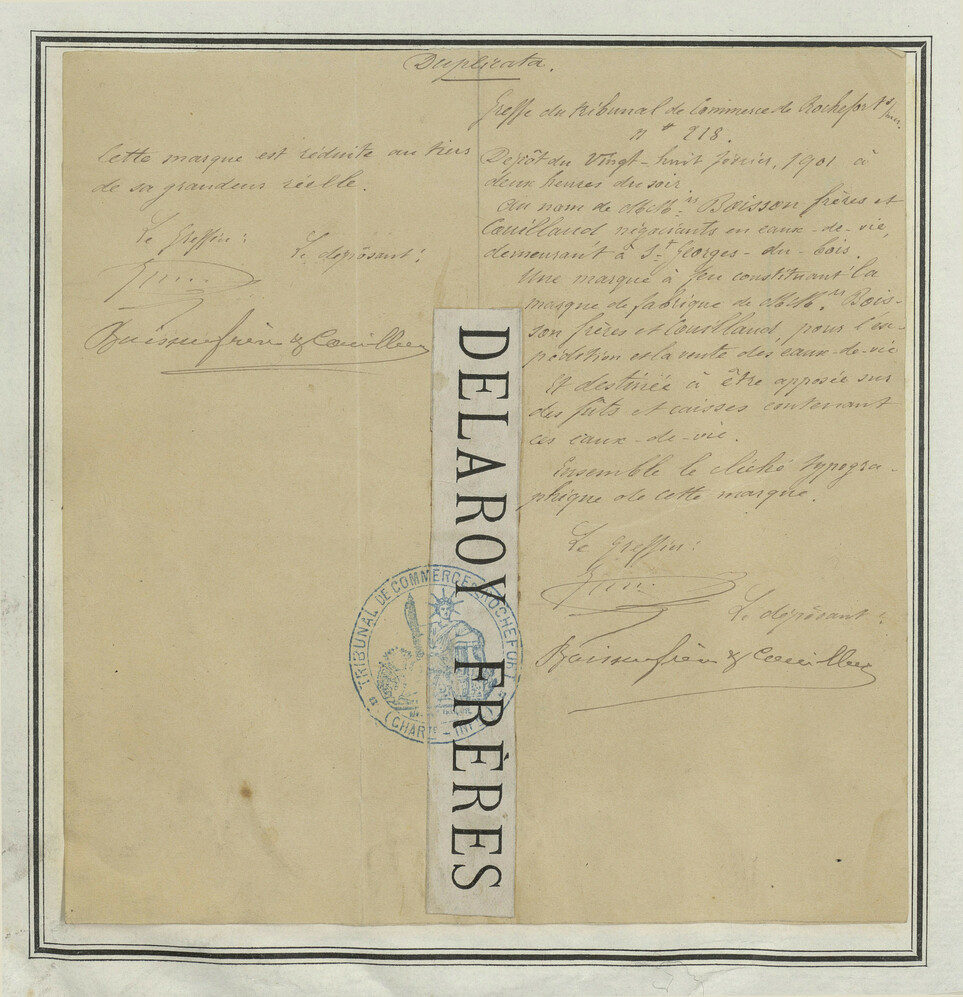 Duplicata.
Cette marque est réduite au tiers
de sa grandeur réelle.
Le Greffier:
Le déposant:
Boisson frères & Couilland
Greffe du tribunal de Commerce de Rochefort s/mer.
n° 218.
Dépôt du vingt-huit février, 1901 à
deux heures du soir
Au nom de MM.rs Boisson frères et
Couilland négociants en eaux-de-vie,
demeurant à St Georges-du-bois.
Une marque à feu constituant la
marque de fabrique de MM.rs Bois-
son frères et Couilland pour l'ex-
pédition et la vente des eaux-de-vie
Et destinée à être apposée sur
des fûts et caisses contenant
ces eaux-de-vie.
Ensemble le cliché typogra-
phique de cette marque.
Le Greffier:
Le déposant:
Boisson frères & Couilland
DELAROY FRÈRES
TRIBUNAL DE COMMERCE ROCHEFORT
(CHARTE - INF